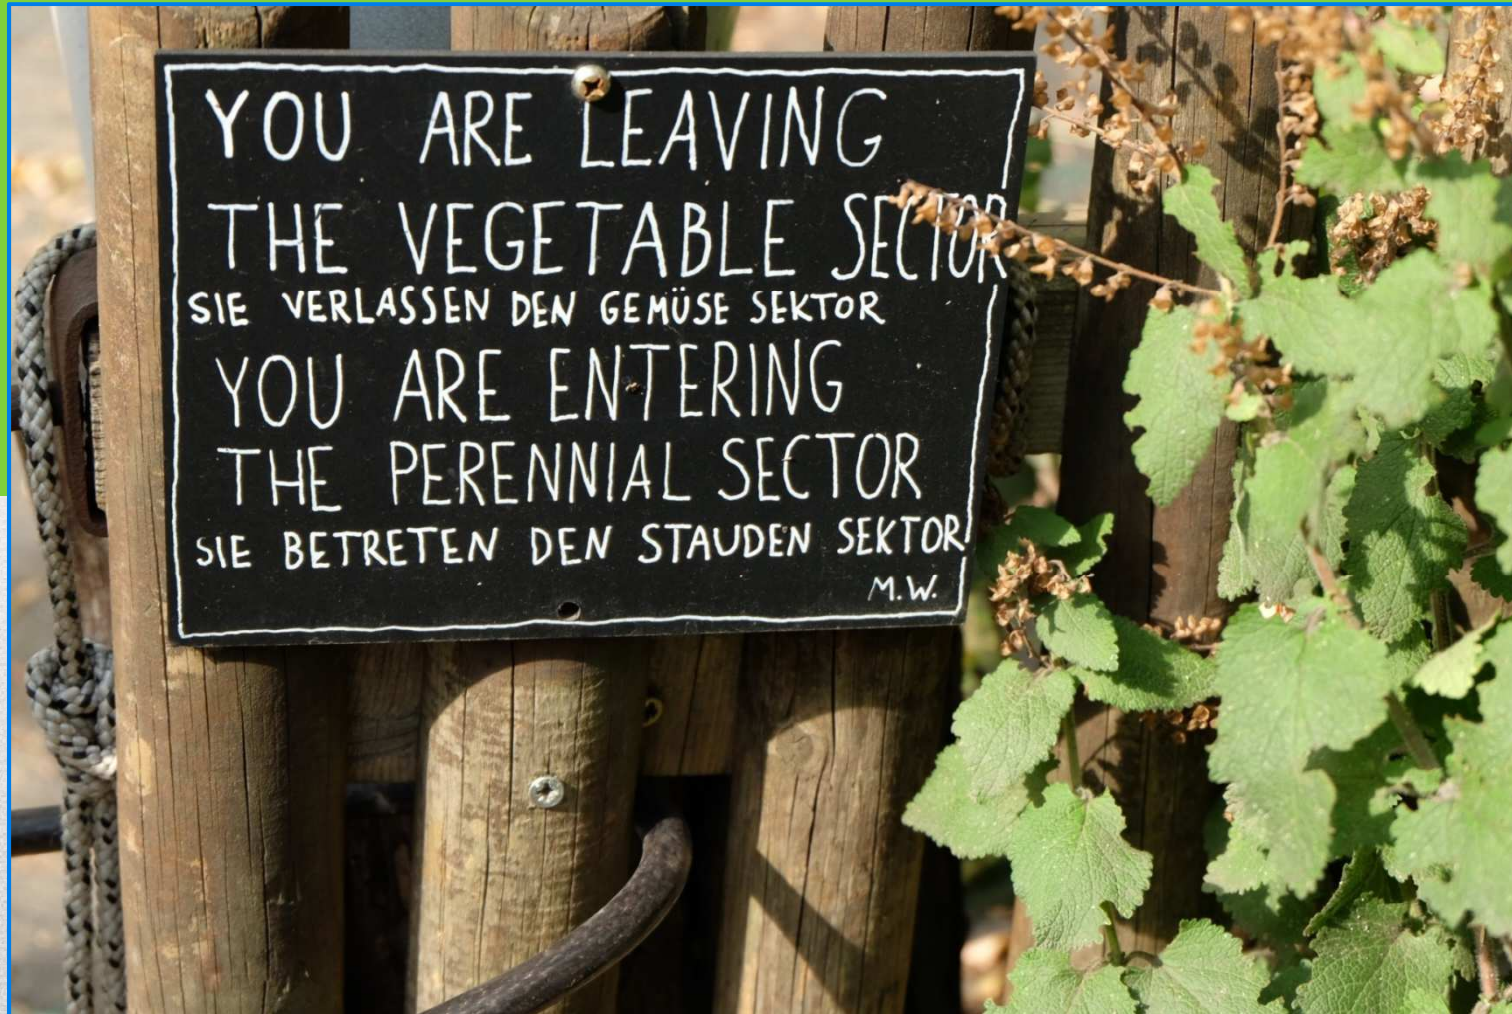 YOU ARE LEAVING
THE VEGETABLE SECTOR
SIE VERLASSEN DEN GEMÜSE SEKTOR
YOU ARE ENTERING
THE PERENNIAL SECTOR
SIE BETRETEN DEN STAUDEN SEKTOR
M.W.